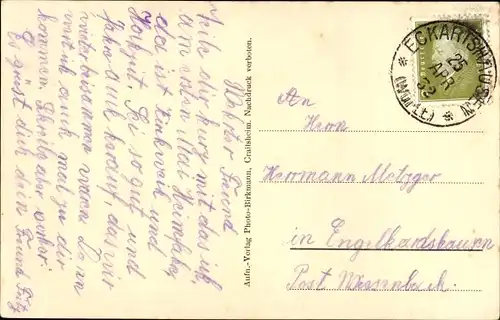 Werter Freund
Teile dir kurz mit das ich
am ersten Mai Heimfahre,
da ist Denkweih und
Hochzeit. Sei so gut und
fahr auch herauf, das wir
wieder beisammen wären Dann
will ich auch mal zu dir
kommen. Schreibe aber vorher
Es grüst dich dein Freund Fritz
Aufn.-Verlag Photo-Birkmann, Crailsheim. Nachdruck verboten.
ECKARTSHAUSEN
25
APR
32
(WÜRTT)
An
Herrn
Herrmann Metzger
in Engelhardshausen
Post Wiesenbach.